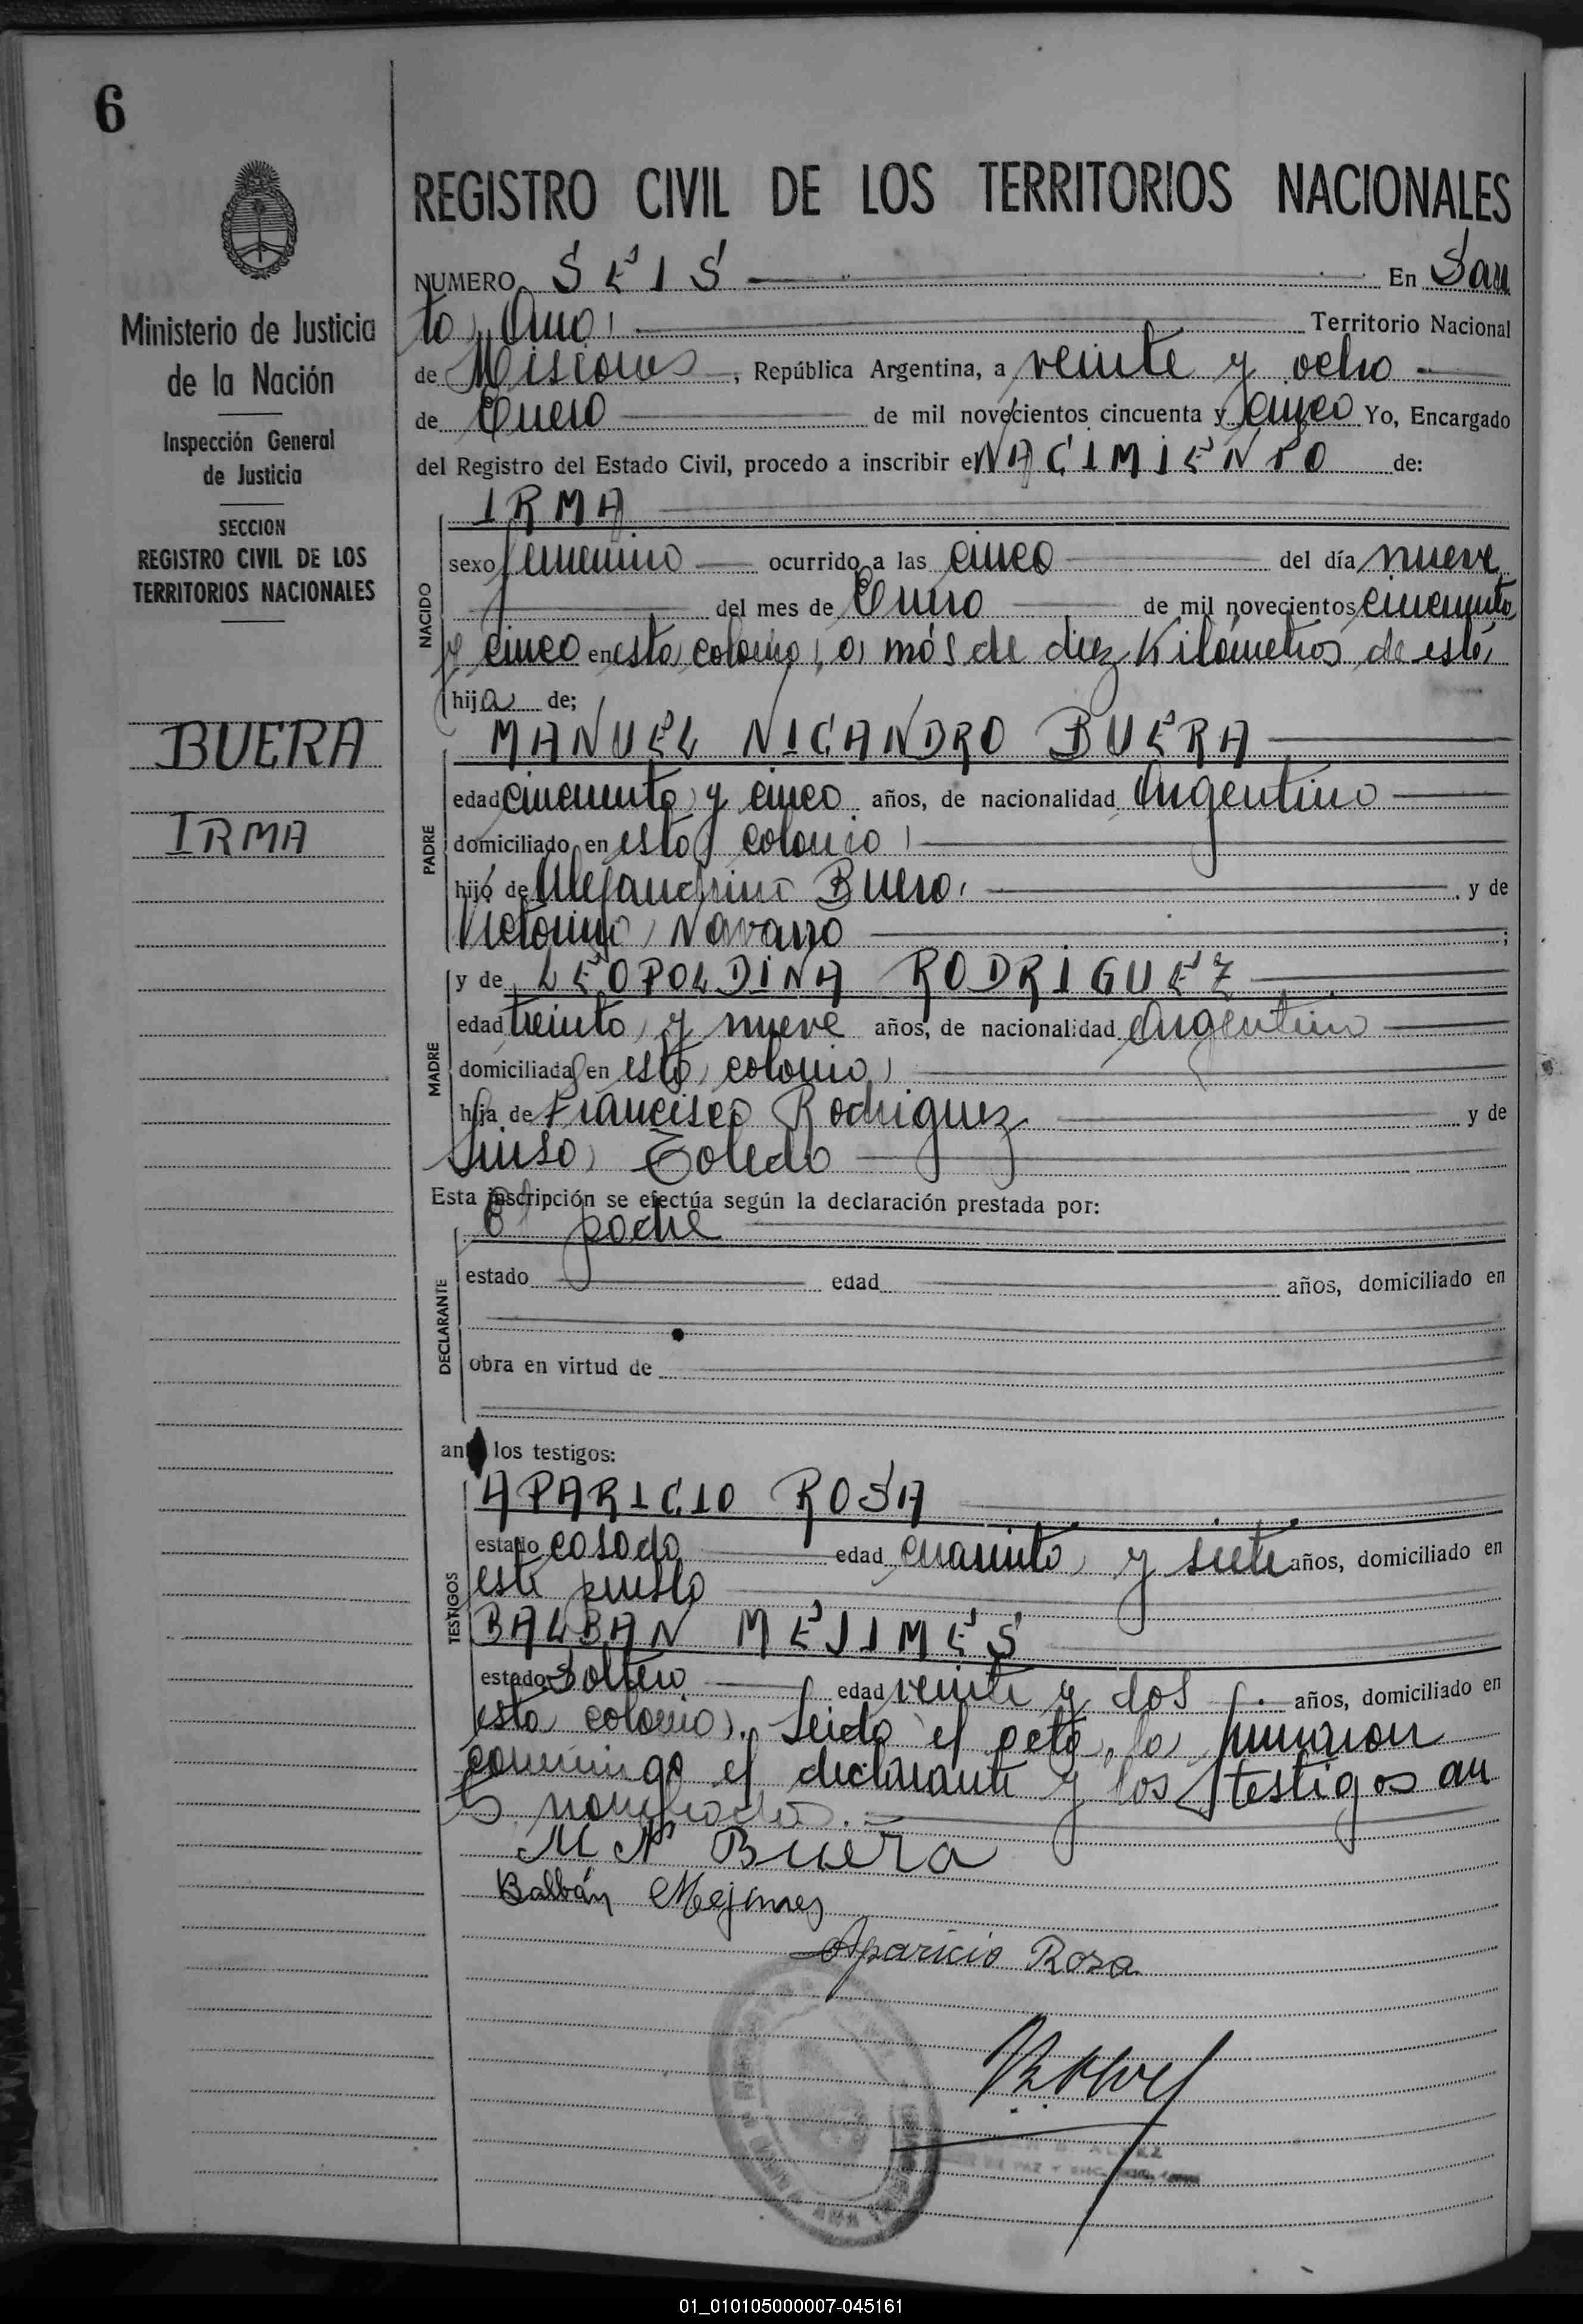 6
Ministerio de Justicia
de la Nación
Inspección General
de Justicia
SECCION
REGISTRO CIVIL DE LOS
TERRITORIOS NACIONALES
BUERA
IRMA
REGISTRO CIVIL DE LOS TERRITORIOS NACIONALES
NUMERO SEIS En San
ta Ana, Territorio Nacional
de Misiones, República Argentina, a veinte y ocho
de Enero de mil novecientos cincuenta y cinco Yo, Encargado
del Registro del Estado Civil, procedo a inscribir el NACIMIENTO de:
NACIDO
IRMA
sexo femenino ocurrido a las cinco del día nueve
del mes de Enero de mil novecientos cincuenta
y cinco en esta colonia, a más de diez Kilómetros de esta,
hija de;
PADRE
MANUEL NICANDRO BUERA
edad cincuenta y cinco años, de nacionalidad Argentino
domiciliado en esta colonia,
hijo de Alejandrino Buera, y de
Victorina Navarro ;
MADRE
y de LEOPOLDINA RODRIGUEZ
edad treinta y nueve años, de nacionalidad Argentina
domiciliada en esta colonia,
hija de Francisco Rodriguez y de
Luisa Toledo
Esta inscripción se efectúa según la declaración prestada por:
DECLARANTE
El padre
estado edad años, domiciliado en
obra en virtud de
ante los testigos:
TESTIGOS
APARICIO ROSA
estado casado edad cuarenta y siete años, domiciliado en
este pueblo
BALBAN MEJIMES
estado soltero edad veinte y dos años, domiciliado en
esta colonia. Leida el acta, la firmaron
conmigo el declarante y los testigos an
tes nombrados.
M N Buera
Balbán Mejimes
Aparicio Rosa
01_010105000007-045161